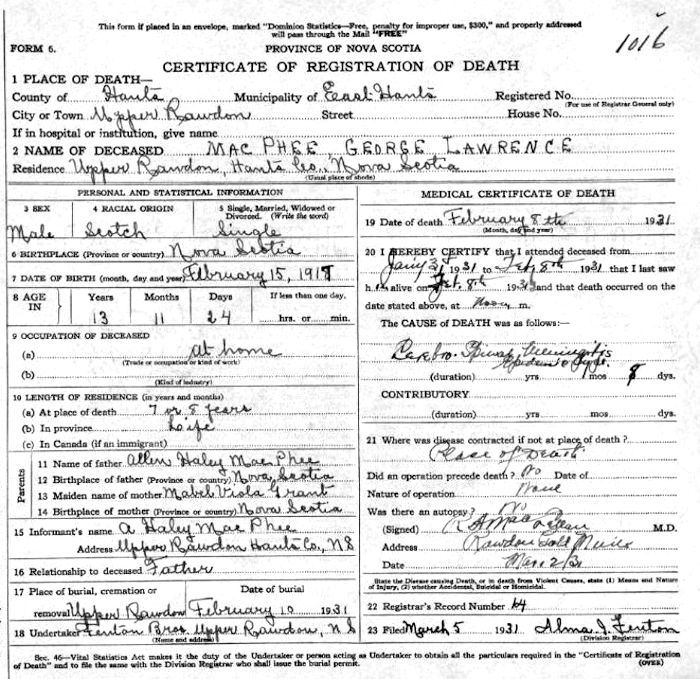 This form if placed in an envelope, marked "Dominion Statistics—Free, penalty for improper use, $300," and properly addressed
will pass through the Mail "FREE"
FORM 6.
PROVINCE OF NOVA SCOTIA
1016
CERTIFICATE OF REGISTRATION OF DEATH
1 PLACE OF DEATH—
County of Hants Municipality of East Hants Registered No.
(For use of Registrar General only)
City or Town Upper Rawdon Street House No.
If in hospital or institution, give name
2 NAME OF DECEASED MAC PHEE, GEORGE LAWRENCE
Residence Upper Rawdon, Hants Co., Nova Scotia
(Usual place of abode)
PERSONAL AND STATISTICAL INFORMATION
3 SEX 4 RACIAL ORIGIN 5 Single, Married, Widowed or
Divorced. (Write the word)
Male Scotch Single
6 BIRTHPLACE (Province or country) Nova Scotia
7 DATE OF BIRTH (month, day and year) February 15, 1917
8 AGE
IN
Years Months Days If less than one day,
13 11 24 hrs. or min.
9 OCCUPATION OF DECEASED
(a) At home
(Trade or occupation or kind of work)
(b)
(Kind of industry)
10 LENGTH OF RESIDENCE (in years and months)
(a) At place of death 7 or 8 years
(b) In province Life
(c) In Canada (if an immigrant)
Parents
11 Name of father Allen Haley Mac Phee
12 Birthplace of father (Province or country) Nova Scotia
13 Maiden name of mother Mabel Viola Grant
14 Birthplace of mother (Province or country) Nova Scotia
15 Informant's name A Haley Mac Phee
Address Upper Rawdon Hants Co., NS
16 Relationship to deceased Father
17 Place of burial, cremation or Date of burial
removal Upper Rawdon February 10 1931
18 Undertaker Fenton Bros. Upper Rawdon, N S
(Name and address)
MEDICAL CERTIFICATE OF DEATH
19 Date of death February 8th 1931
(Month, day and year)
20 I HEREBY CERTIFY that I attended deceased from
1931 to Feb. 8th 1931 that I last saw
h im alive on Feb. 8th 1931 and that death occurred on
the date stated above, at Noon m.
The CAUSE OF DEATH was as follows:—
Cerebro. Spinal Meningitis
Epidemic Type.
(duration) yrs mos 8 dys.
CONTRIBUTORY
(duration) yrs. mos. dys.
21 Where was disease contracted if not at place of death?
Place of Death
Did an operation precede death? No Date of
Nature of operation None
Was there an autopsy? No
(Signed) M.D.
Address Rawdon Gold Mines
Date
(State the Disease causing Death, or in death from Violent Causes, state (1) Means and Nature
of Injury, (2) whether Accidental, Suicidal or Homicidal.
22 Registrar's Record Number 64
23 Filed March 5 1931. Alma J. Fenton
(Division Registrar)
Sec. 46—Vital Statistics Act makes it the duty of the Undertaker or person acting as Undertaker to obtain all the particulars required in the "Certificate of Registration
of Death" and to file the same with the Division Registrar who shall issue the burial permit. (OVER)